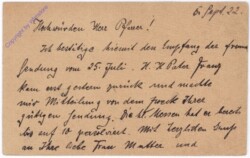 5. Sept. 22
Hochwürden Herr Pfarrer!
Ich bestätige hiemit den Empfang der fromm
Sendung vom 25. Juli. H. H. Pater Franz
kam erst gestern zurück und machte
mir Mitteilung von dem Zweck Ihrer
gütigen Sendung. Die Messen hat er bereits
bis auf 10 persolviert. Mit herzlichem Gruß
an Ihre liebe Frau Mutter und